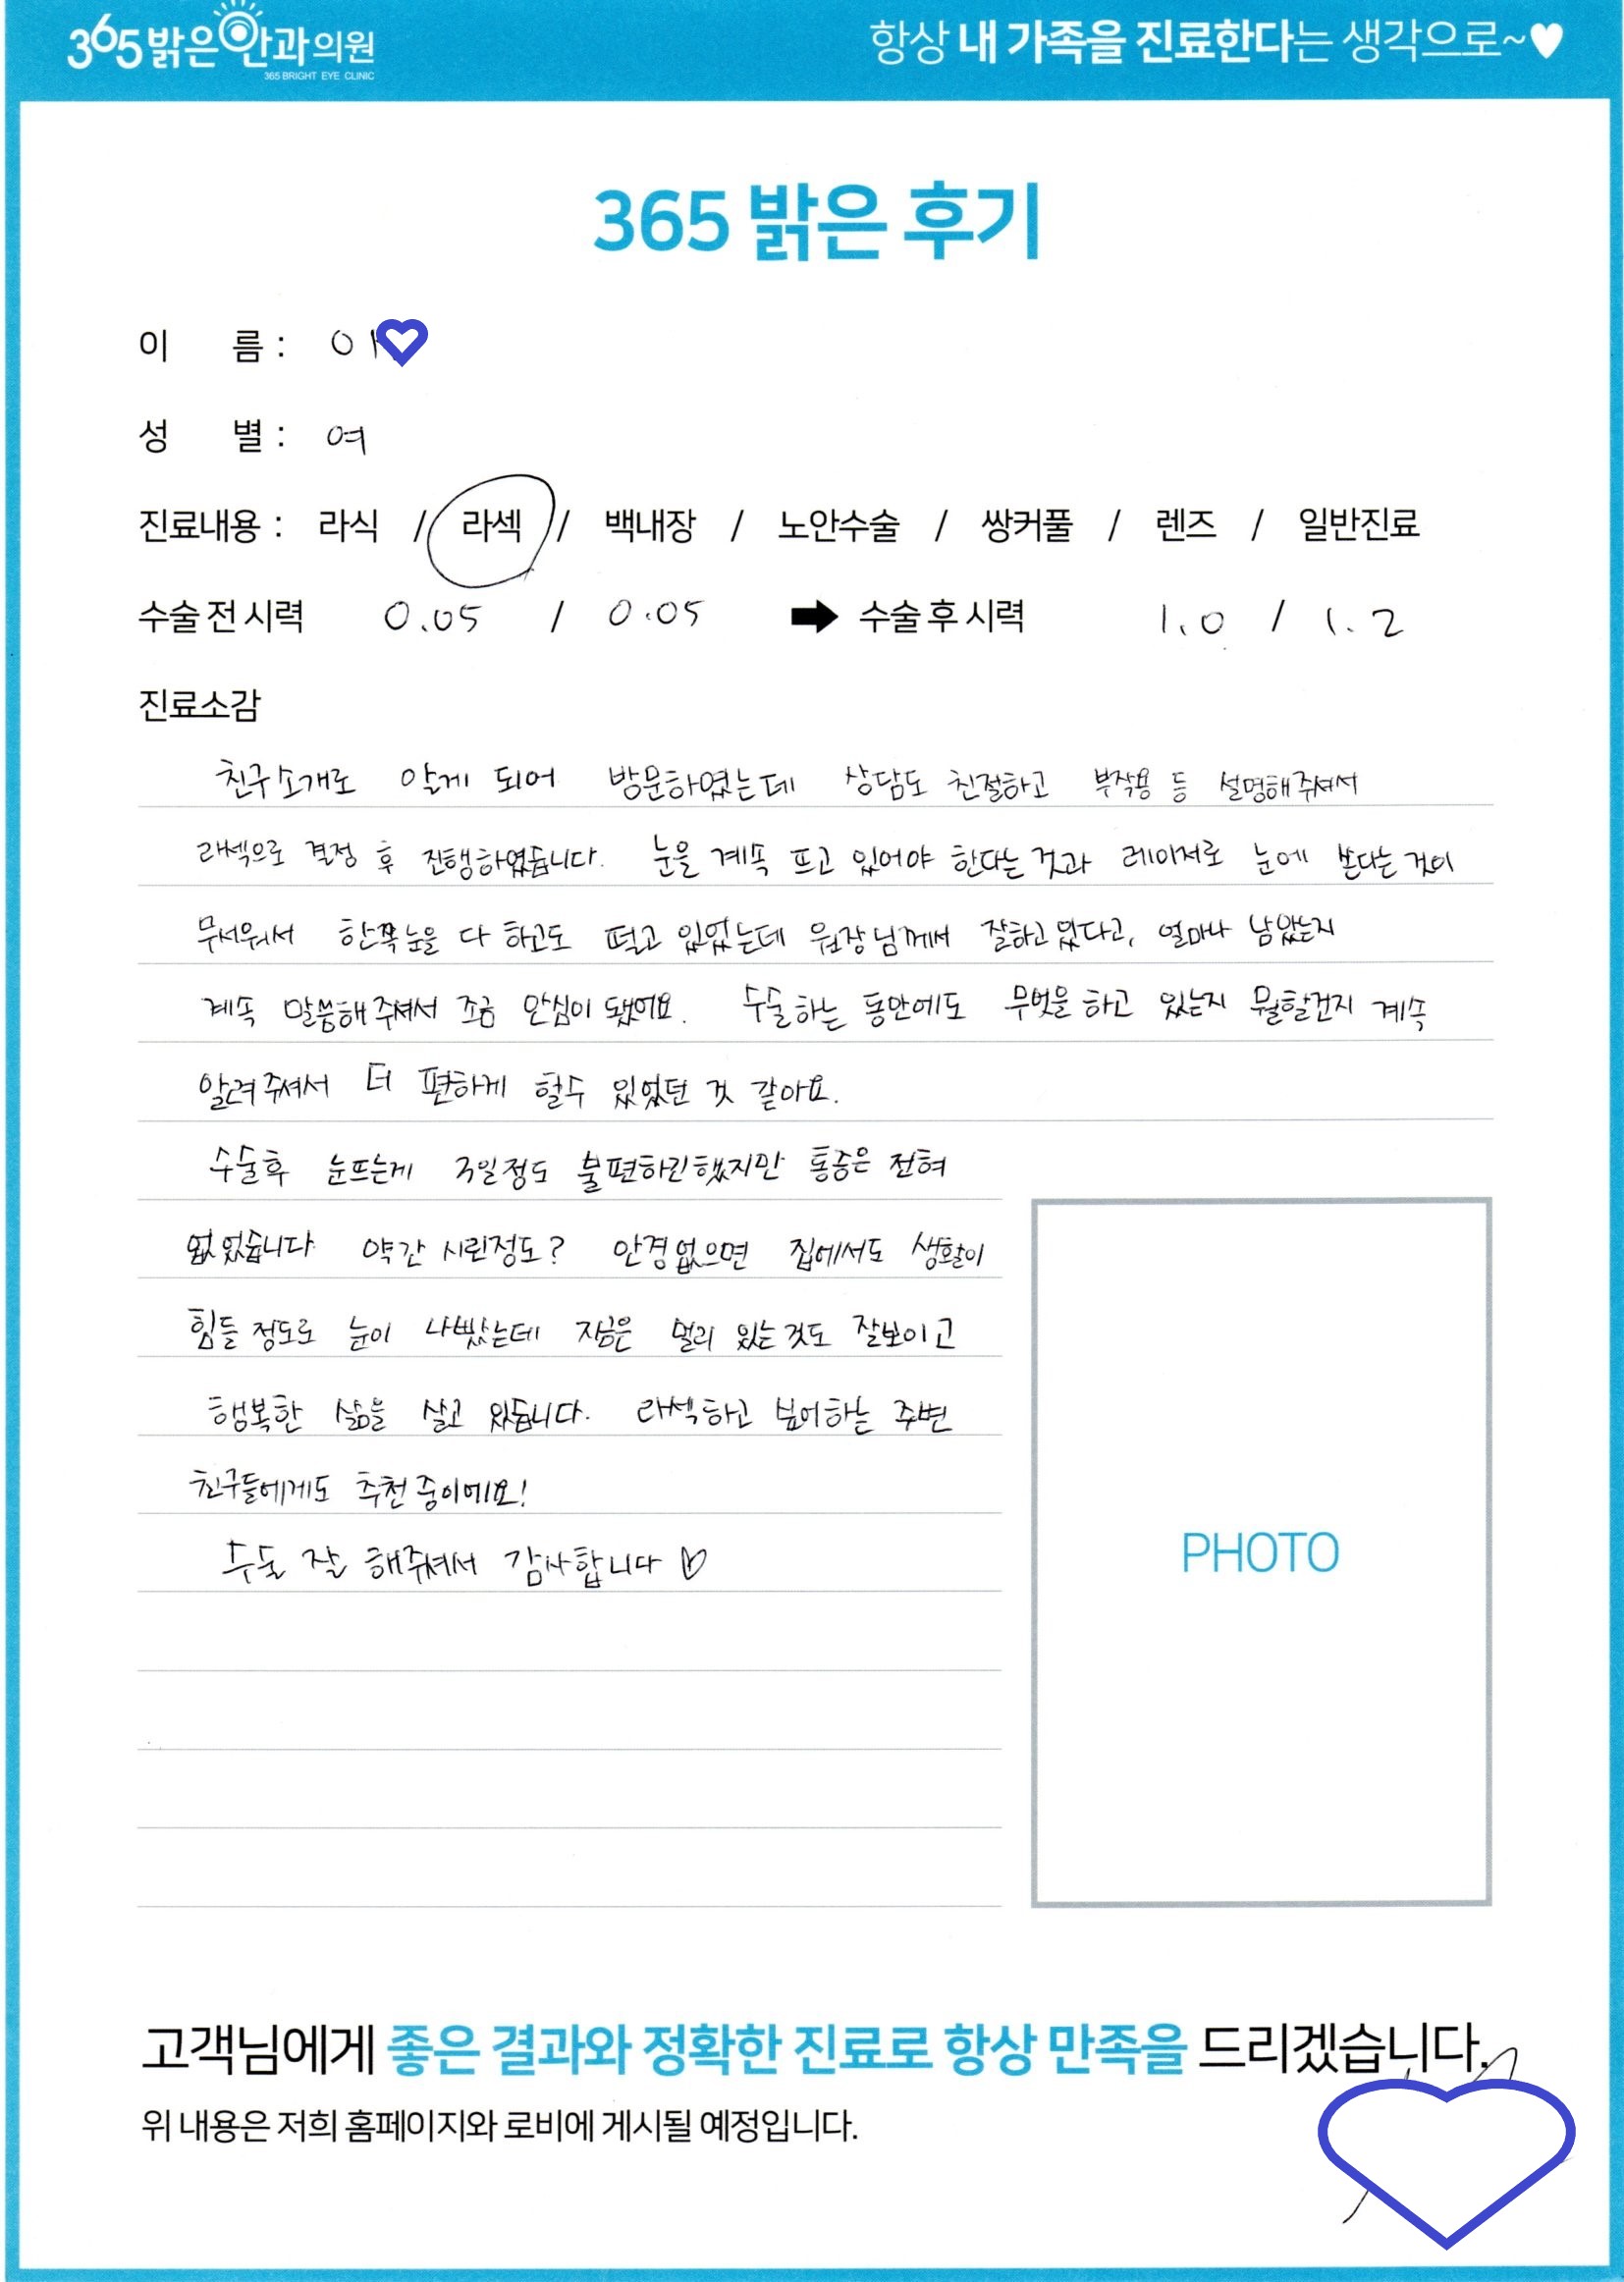 365밝은안과의원
365 BRIGHT EYE CLINIC
항상 내 가족을 진료한다는 생각으로~♥
365 밝은 후기
이 름 : 이
성 별 : 여
진료내용 : 라식 / 라섹 / 백내장 / 노안수술 / 쌍커풀 / 렌즈 / 일반진료
수술 전 시력 0.05 / 0.05 ➡ 수술 후 시력 1.0 / 1.2
진료소감
친구소개로 알게 되어 방문하였는데 상담도 친절하고 부작용 등 설명해주셔서
라섹으로 결정 후 진행하였습니다. 눈을 계속 뜨고 있어야 한다는 것과 레이저로 눈에 쏜다는 것이
무서워서 한쪽눈을 다 하고도 떨고 있었는데 원장님께서 잘하고있다고, 얼마나 남았는지
계속 말씀해주셔서 조금 안심이 됐어요. 수술하는 동안에도 무엇을 하고 있는지 뭘할건지 계속
알려주셔서 더 편하게 할수 있었던 것 같아요.
수술후 눈뜨는게 3일정도 불편하긴했지만 통증은 전혀
없었습니다 약간 시린정도? 안경없으면 집에서도 생활이
힘들 정도로 눈이 나빴는데 지금은 멀리 있는것도 잘보이고
행복한 삶을 살고 있습니다. 라섹하고 싶어하는 주변
친구들에게도 추천중이에요!
수술 잘 해주셔서 감사합니다 ♡
PHOTO
고객님에게 좋은 결과와 정확한 진료로 항상 만족을 드리겠습니다.
위 내용은 저희 홈페이지와 로비에 게시될 예정입니다.